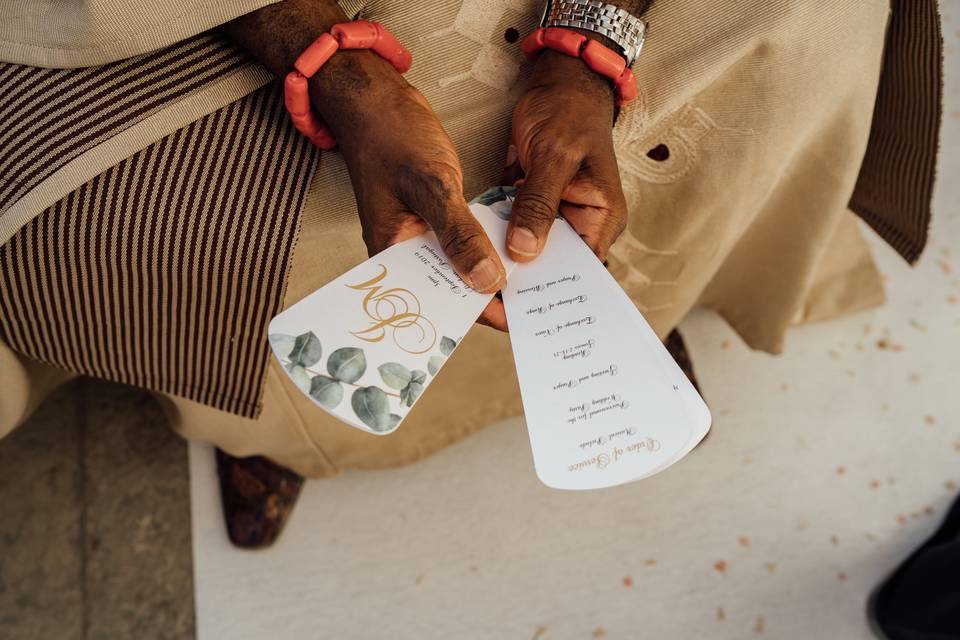 Order of Service
Musical Prelude
Processional for the
Wedding Party
Greeting and Prayer
Reading
Genesis 2:18-24
Exchange of Vows
Exchange of Rings
Prayer and Blessing
1 September 2019
Portugal